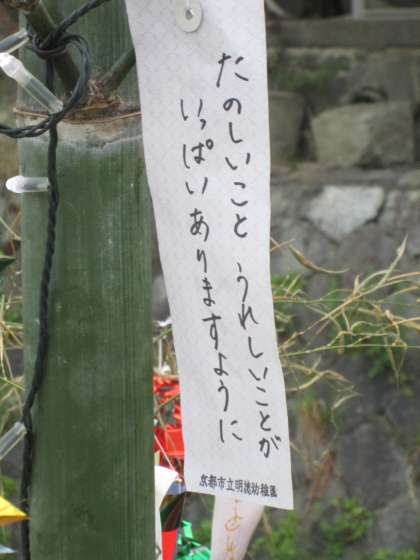 たのしいこと うれしいことが
いっぱいありますように
京都市立明徳幼稚園